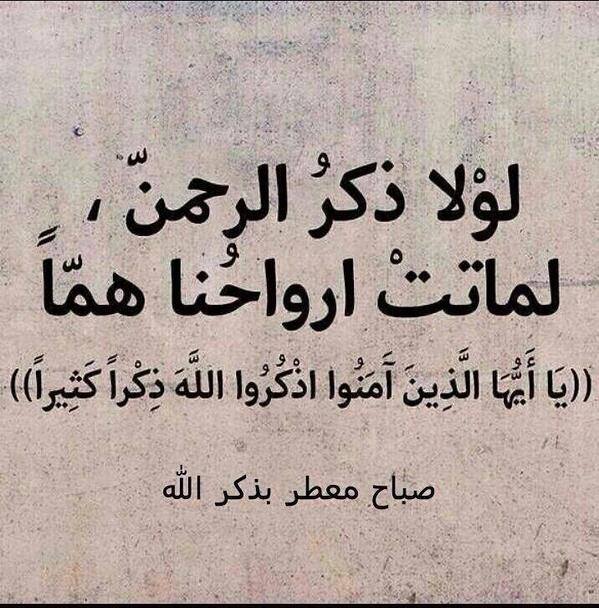 لوْلا ذكرُ الرحمنّ ،
لماتتْ ارواحُنا همّاً
((يَا أَيُّهَا الَّذِينَ آَمَنُوا اذْكُرُوا اللَّهَ ذِكْراً كَثِيراً))
صباح معطر بذكر الله